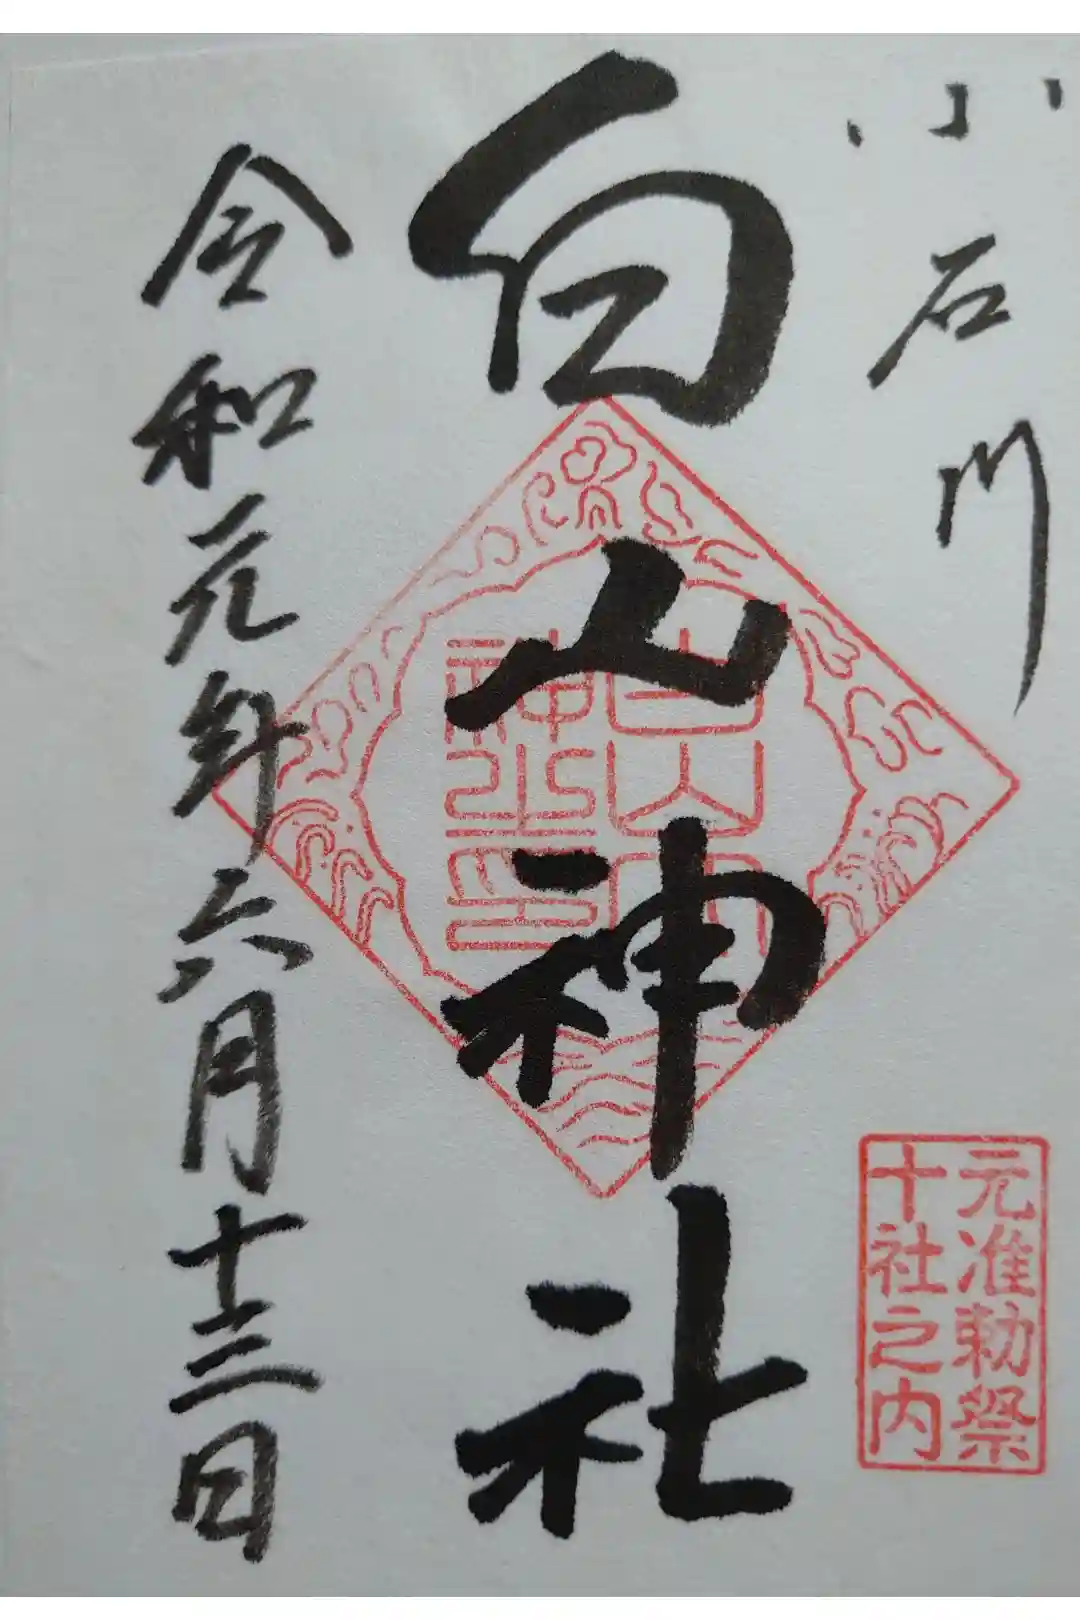 小石川
白山神社
令和元年六月十三日
元准勅祭
十社之内